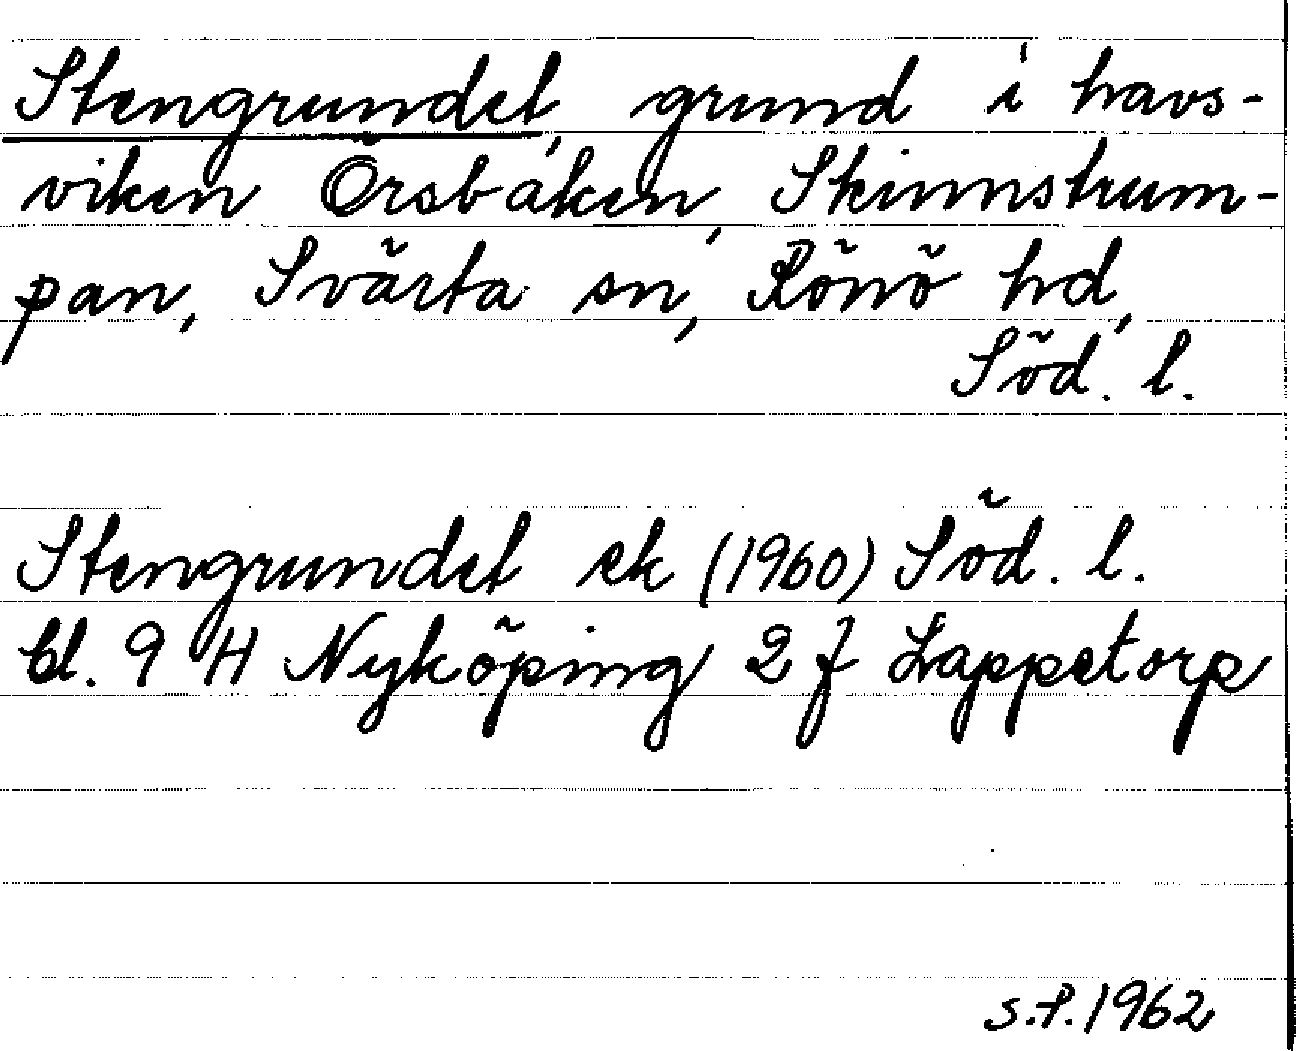 Stengrundet, grund i havs-
viken Örsbaken, Skinnstrum-
pan, Svärta sn, Rönö hd,
Söd. l.
Stengrundet ek (1960) Söd. l.
bl. 9 H Nyköping 2 f Lappetorp
s.P. 1962